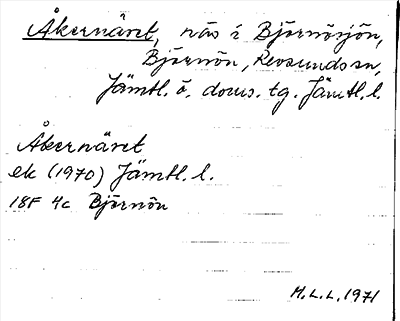 Åkernäret, näs i Björnösjön,
Björnön, Revsunds sn,
Jämtl. ö. doms. tg. Jämtl. l.
Åkernäret
ek (1970) Jämtl. l.
18F 4c Björnön
M.L.L. 1971